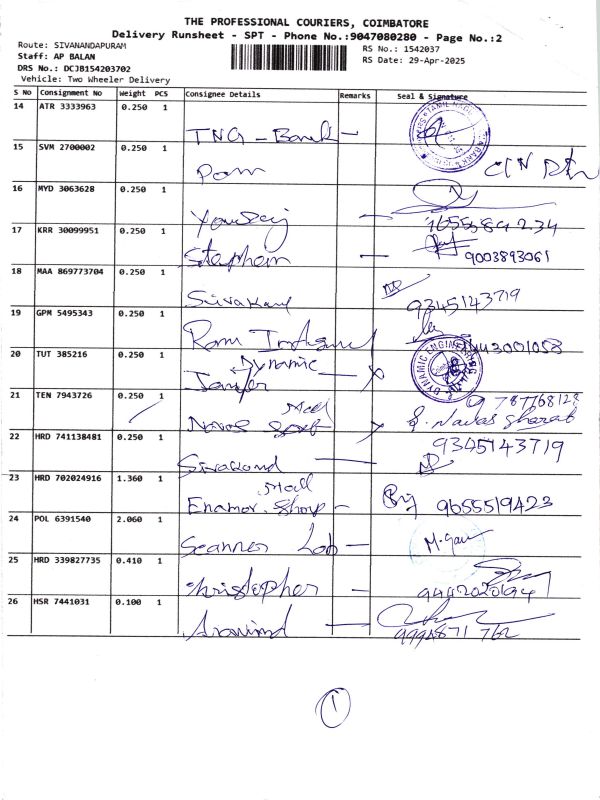 THE PROFESSIONAL COURIERS, COIMBATORE
Delivery Runsheet - SPT - Phone No.:9047080280 - Page No.:2
Route: SIVANANDAPURAM
RS No.: 1542037
Staff: AP BALAN
RS Date: 29-Apr-2025
DRS No.: DCJB154203702
Vehicle: Two Wheeler Delivery
S No Consignment No Weight PCS Consignee Details Remarks Seal & Signature
14 ATR 3333963 0.250 1
TNG - Bank -
15 SVM 2700002 0.250 1
Pom
16 MYD 3063628 0.250 1
17 KRR 30099951 0.250 1
Stephen - 9003893061
18 MAA 869773704 0.250 1
Sivakand 9345143719
19 GPM 5495343 0.250 1
Ram
20 TUT 385216 0.250 1
Dynamic
DYNAMIC ENGINEERS
21 TEN 7943726 0.250 1
Navas S. Navas Sharab
22 HRD 741138481 0.250 1
9345143719
Sivakand
23 HRD 702024916 1.360 1
Enamor Shop - 9655519423
24 POL 6391540 2.060 1
Scanner Lab - M. Gau
25 HRD 339827735 0.410 1
Christopher -
26 HSR 7441031 0.100 1
Aravind 9994871762
1